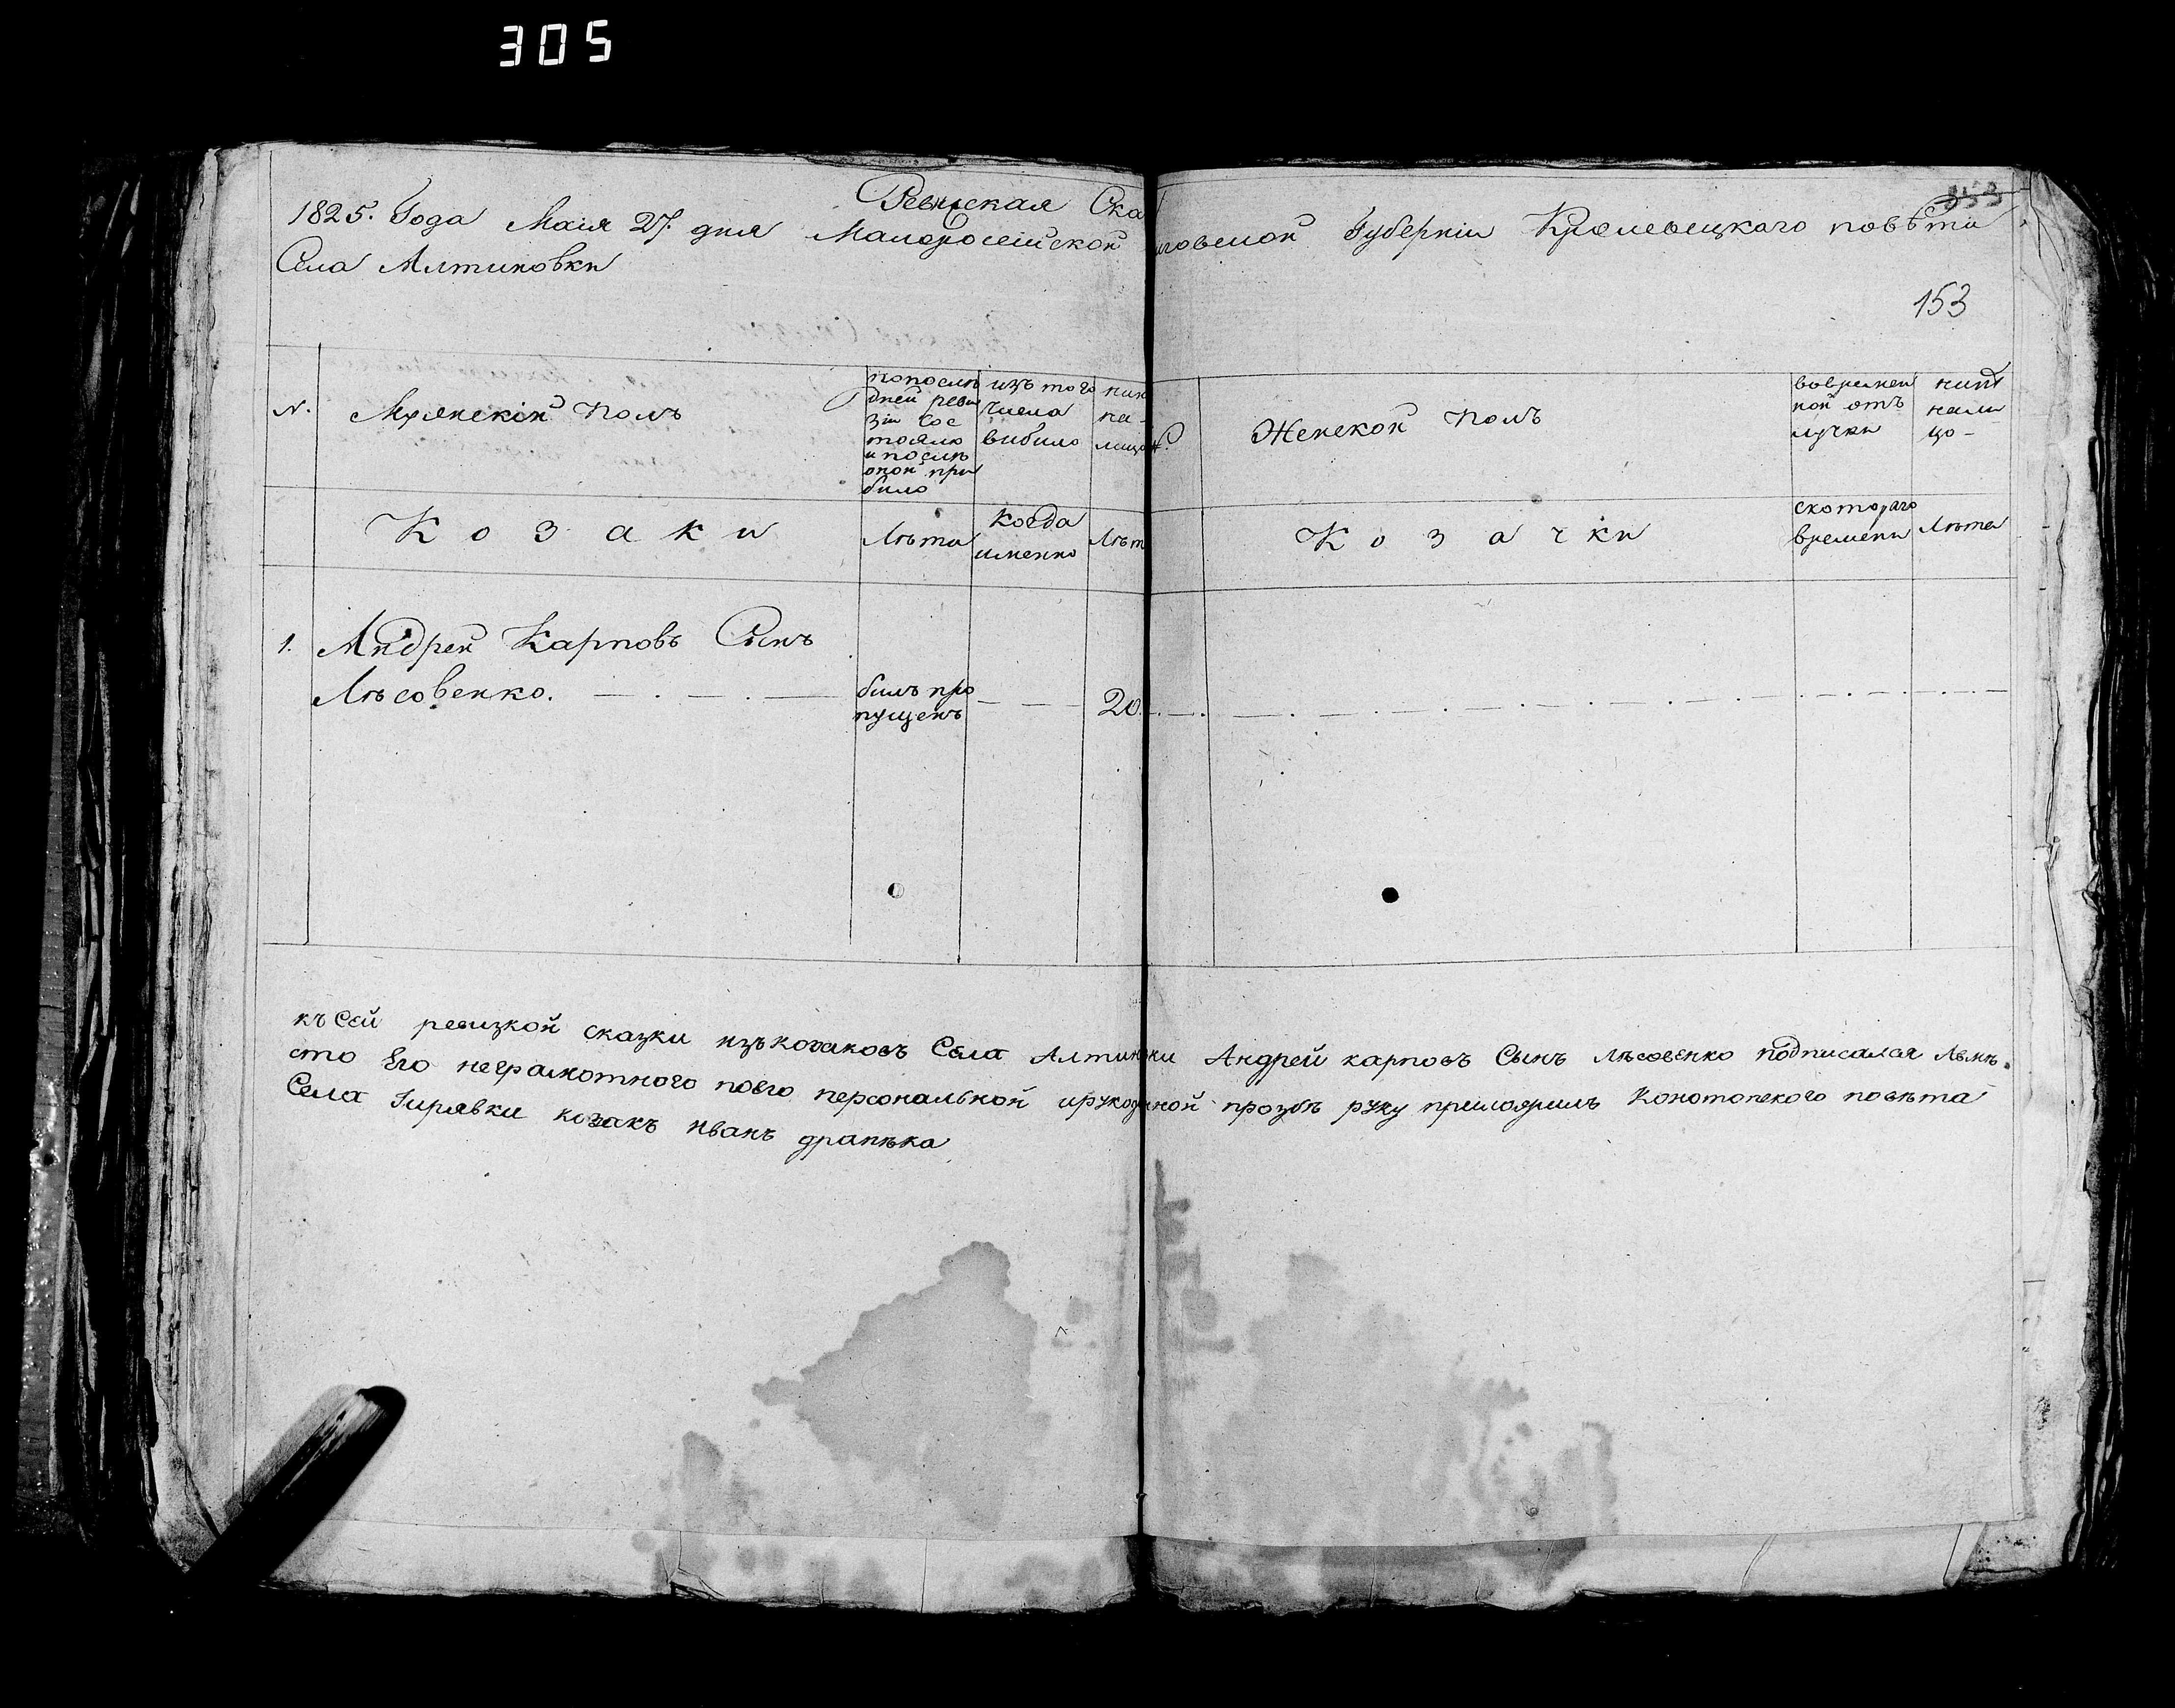 305
Ревизская Ска
353
1825. Года Маія 27. дня Малоросейской говской Губерніи Кролевецкого повѣта
Села Алтиновки
153
N. Мужескій полъ
попослѣ
дней реви
зіи сос
тояло
и послѣ
оной при
било
изъ того
числа
вибило
нин
на-
лицо
N. Женской полъ
вовремен
ной отъ
лучки
нинѣ
нали
цо-
К о з а к и
Лѣта
когда
именно
Лѣт
К о з а ч к и
скотораго
времени
Лѣта
1. Андрей Карповъ Сынъ
Лѣсовенко. билъ про
пущенъ 20.
къ Сей ревизкой сказки изъ козаковъ Села Алтиновки Андрей карповъ Сынъ лѣсовенко подписался Авмѣ-
сто Его неграмотного поего персональной ирукодачной прозбѣ руку приложилъ Конотопского повѣта
Села Гирявки козакъ Иванъ драпѣка